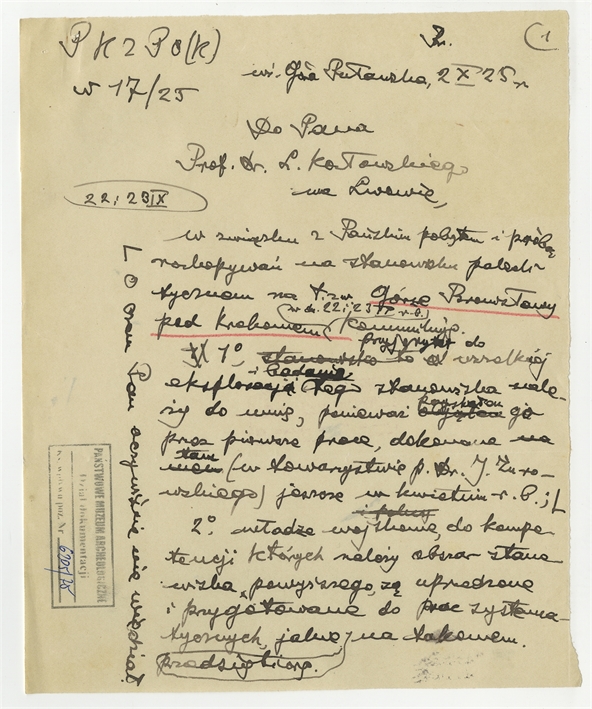 PKZPO(K)
W 17/25
1
wś. Góra Puławska, 2 X 25 r
Do Pana
Prof. Dr. L. Kozłowskiego
we Lwowie,
22 i 23 IX
w związku z Pańskim pobytem i próbą
rozkopywań na stanowisku paleoli-
tycznem na t. zw. Górze Bronisławy
pod Krakowem (w dn. 22 i 23 IX r. b.) komunikuję.
1°, pierwszeństwo do
wszelkiej
i badania
eksploracji tego stanowiska nale-
ży do mnie, ponieważ go
przez pierwsze prace, dokonane
tam (w towarzystwie p. Dr. J. Żuro-
wskiego) jeszcze w kwietniu r. b.;
2°. władze wojskowe, do kompe-
tencji których należy obszar stano-
wiska powyższego, są uprzedzone
i przygotowane do prac systema-
tycznych, jakie na takowem
przedsiębiorę.
L o czem Pan oczywiście nie wiedział!
PAŃSTWOWE MUZEUM ARCHEOLOGICZNE
Dział dokumentacji